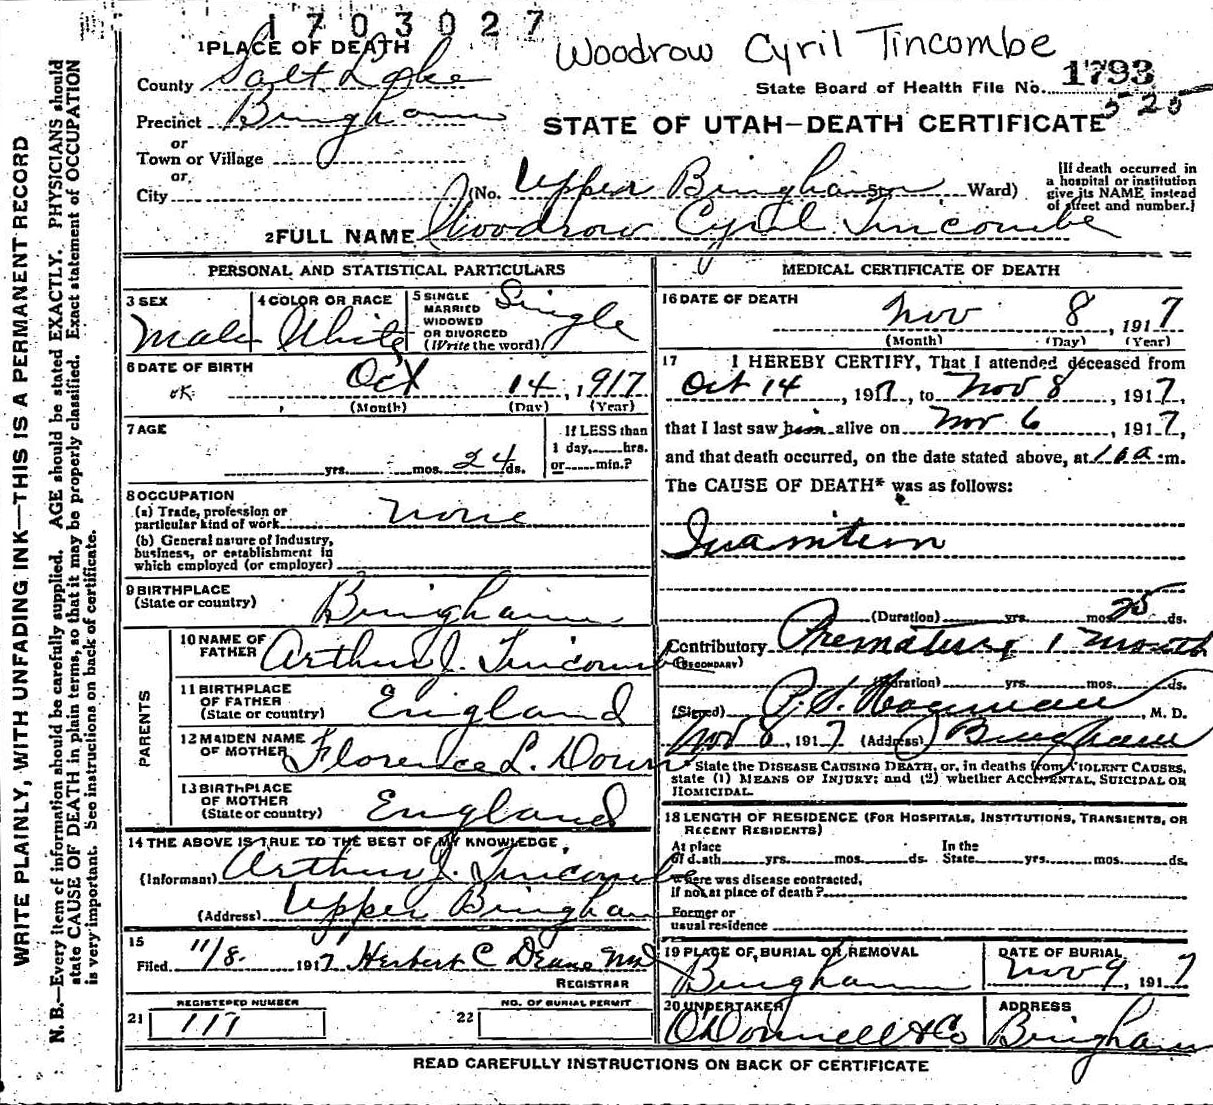 1703027
Woodrow Cyril Tincombe
1 PLACE OF DEATH
County Salt Lake
State Board of Health File No. 1793
525
Precinct Bingham
STATE OF UTAH—DEATH CERTIFICATE
or
Town or Village
or
City (No. Upper Bingham St. Ward)
[If death occurred in
a hospital or institution
give its NAME instead
of street and number.]
2 FULL NAME Woodrow Cyril Tincombe
PERSONAL AND STATISTICAL PARTICULARS
3 SEX Male
4 COLOR OR RACE White
5 SINGLE
MARRIED
WIDOWED
OR DIVORCED
(Write the word) Single
6 DATE OF BIRTH
OK Oct 14, 1917
(Month) (Day) (Year)
7 AGE
yrs. mos. 24 ds.
If LESS than
1 day, hrs.
or min.?
8 OCCUPATION
(a) Trade, profession or
particular kind of work None
(b) General nature of Industry,
business, or establishment in
which employed (or employer)
9 BIRTHPLACE
(State or country) Bingham
PARENTS
10 NAME OF
FATHER Arthur J. Tincombe
11 BIRTHPLACE
OF FATHER
(State or country) England
12 MAIDEN NAME
OF MOTHER Florence L. Down
13 BIRTHPLACE
OF MOTHER
(State or country) England
14 THE ABOVE IS TRUE TO THE BEST OF MY KNOWLEDGE,
(Informant) Arthur J. Tincombe
(Address) Upper Bingham
15
Filed 11/8. 1917 Herbert C Deane MD
REGISTRAR
REGISTERED NUMBER
21 117
NO. OF BURIAL PERMIT
22
MEDICAL CERTIFICATE OF DEATH
16 DATE OF DEATH
Nov 8, 1917
(Month) (Day) (Year)
17 I HEREBY CERTIFY, That I attended deceased from
Oct 14, 1917, to Nov 8, 1917,
that I last saw him alive on Nov. 6, 1917,
and that death occurred, on the date stated above, at m.
The CAUSE OF DEATH* was as follows:
Inanition
(Duration) yrs. mos. 25 ds.
Contributory Premature 1 month
(SECONDARY)
(Duration) yrs. mos. ds.
(Signed) , M. D.
Nov 8, 1917 (Address) Bingham
* State the DISEASE CAUSING DEATH, or, in deaths from VIOLENT CAUSES,
state (1) MEANS OF INJURY; and (2) whether ACCIDENTAL, SUICIDAL OR
HOMICIDAL.
18 LENGTH OF RESIDENCE (FOR HOSPITALS, INSTITUTIONS, TRANSIENTS, OR
RECENT RESIDENTS)
At place
of death yrs. mos. ds.
In the
State yrs. mos. ds.
Where was disease contracted,
If not at place of death?
Former or
usual residence
19 PLACE OF BURIAL OR REMOVAL
Bingham
DATE OF BURIAL
Nov 9, 1917
20 UNDERTAKER
O'Donnell & Co
ADDRESS
Bingham
READ CAREFULLY INSTRUCTIONS ON BACK OF CERTIFICATE
WRITE PLAINLY, WITH UNFADING INK—THIS IS A PERMANENT RECORD
N. B.—Every item of information should be carefully supplied. AGE should be stated EXACTLY. PHYSICIANS should
state CAUSE OF DEATH in plain terms, so that it may be properly classified. Exact statement of OCCUPATION
is very important. See instructions on back of certificate.